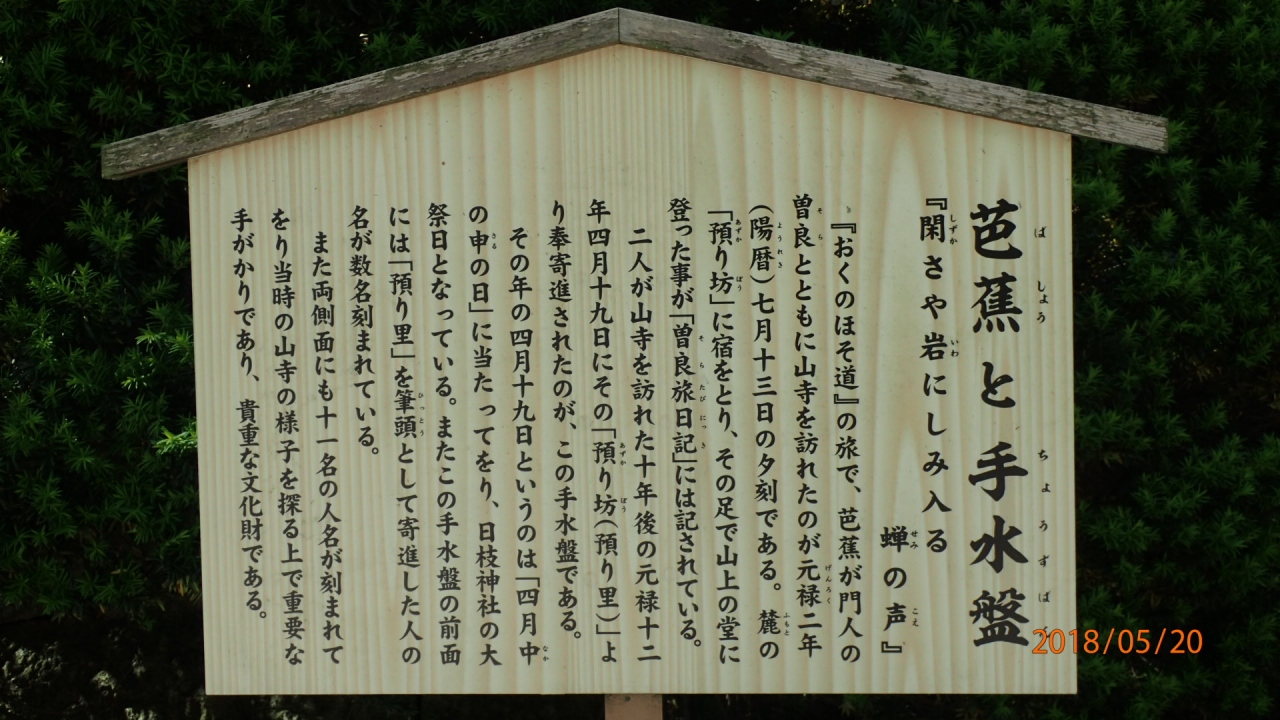 芭蕉と手水盤
『閑さや岩にしみ入る
蝉の声』
『おくのほそ道』の旅で、芭蕉が門人の
曽良とともに山寺を訪れたのが元禄二年
(陽暦)七月十三日の夕刻である。麓の
「預り坊」に宿をとり、その足で山上の堂に
登った事が「曽良旅日記」には記されている。
二人が山寺を訪れた十年後の元禄十二
年四月十九日にその「預り坊(預り里)」よ
り奉寄進されたのが、この手水盤である。
その年の四月十九日というのは「四月中
の申の日」に当たってをり、日枝神社の大
祭日となっている。またこの手水盤の前面
には「預り里」を筆頭として寄進した人の
名が数名刻まれている。
また両側面にも十一名の人名が刻まれて
をり当時の山寺の様子を探る上で重要な
手がかりであり、貴重な文化財である。
2018/05/20